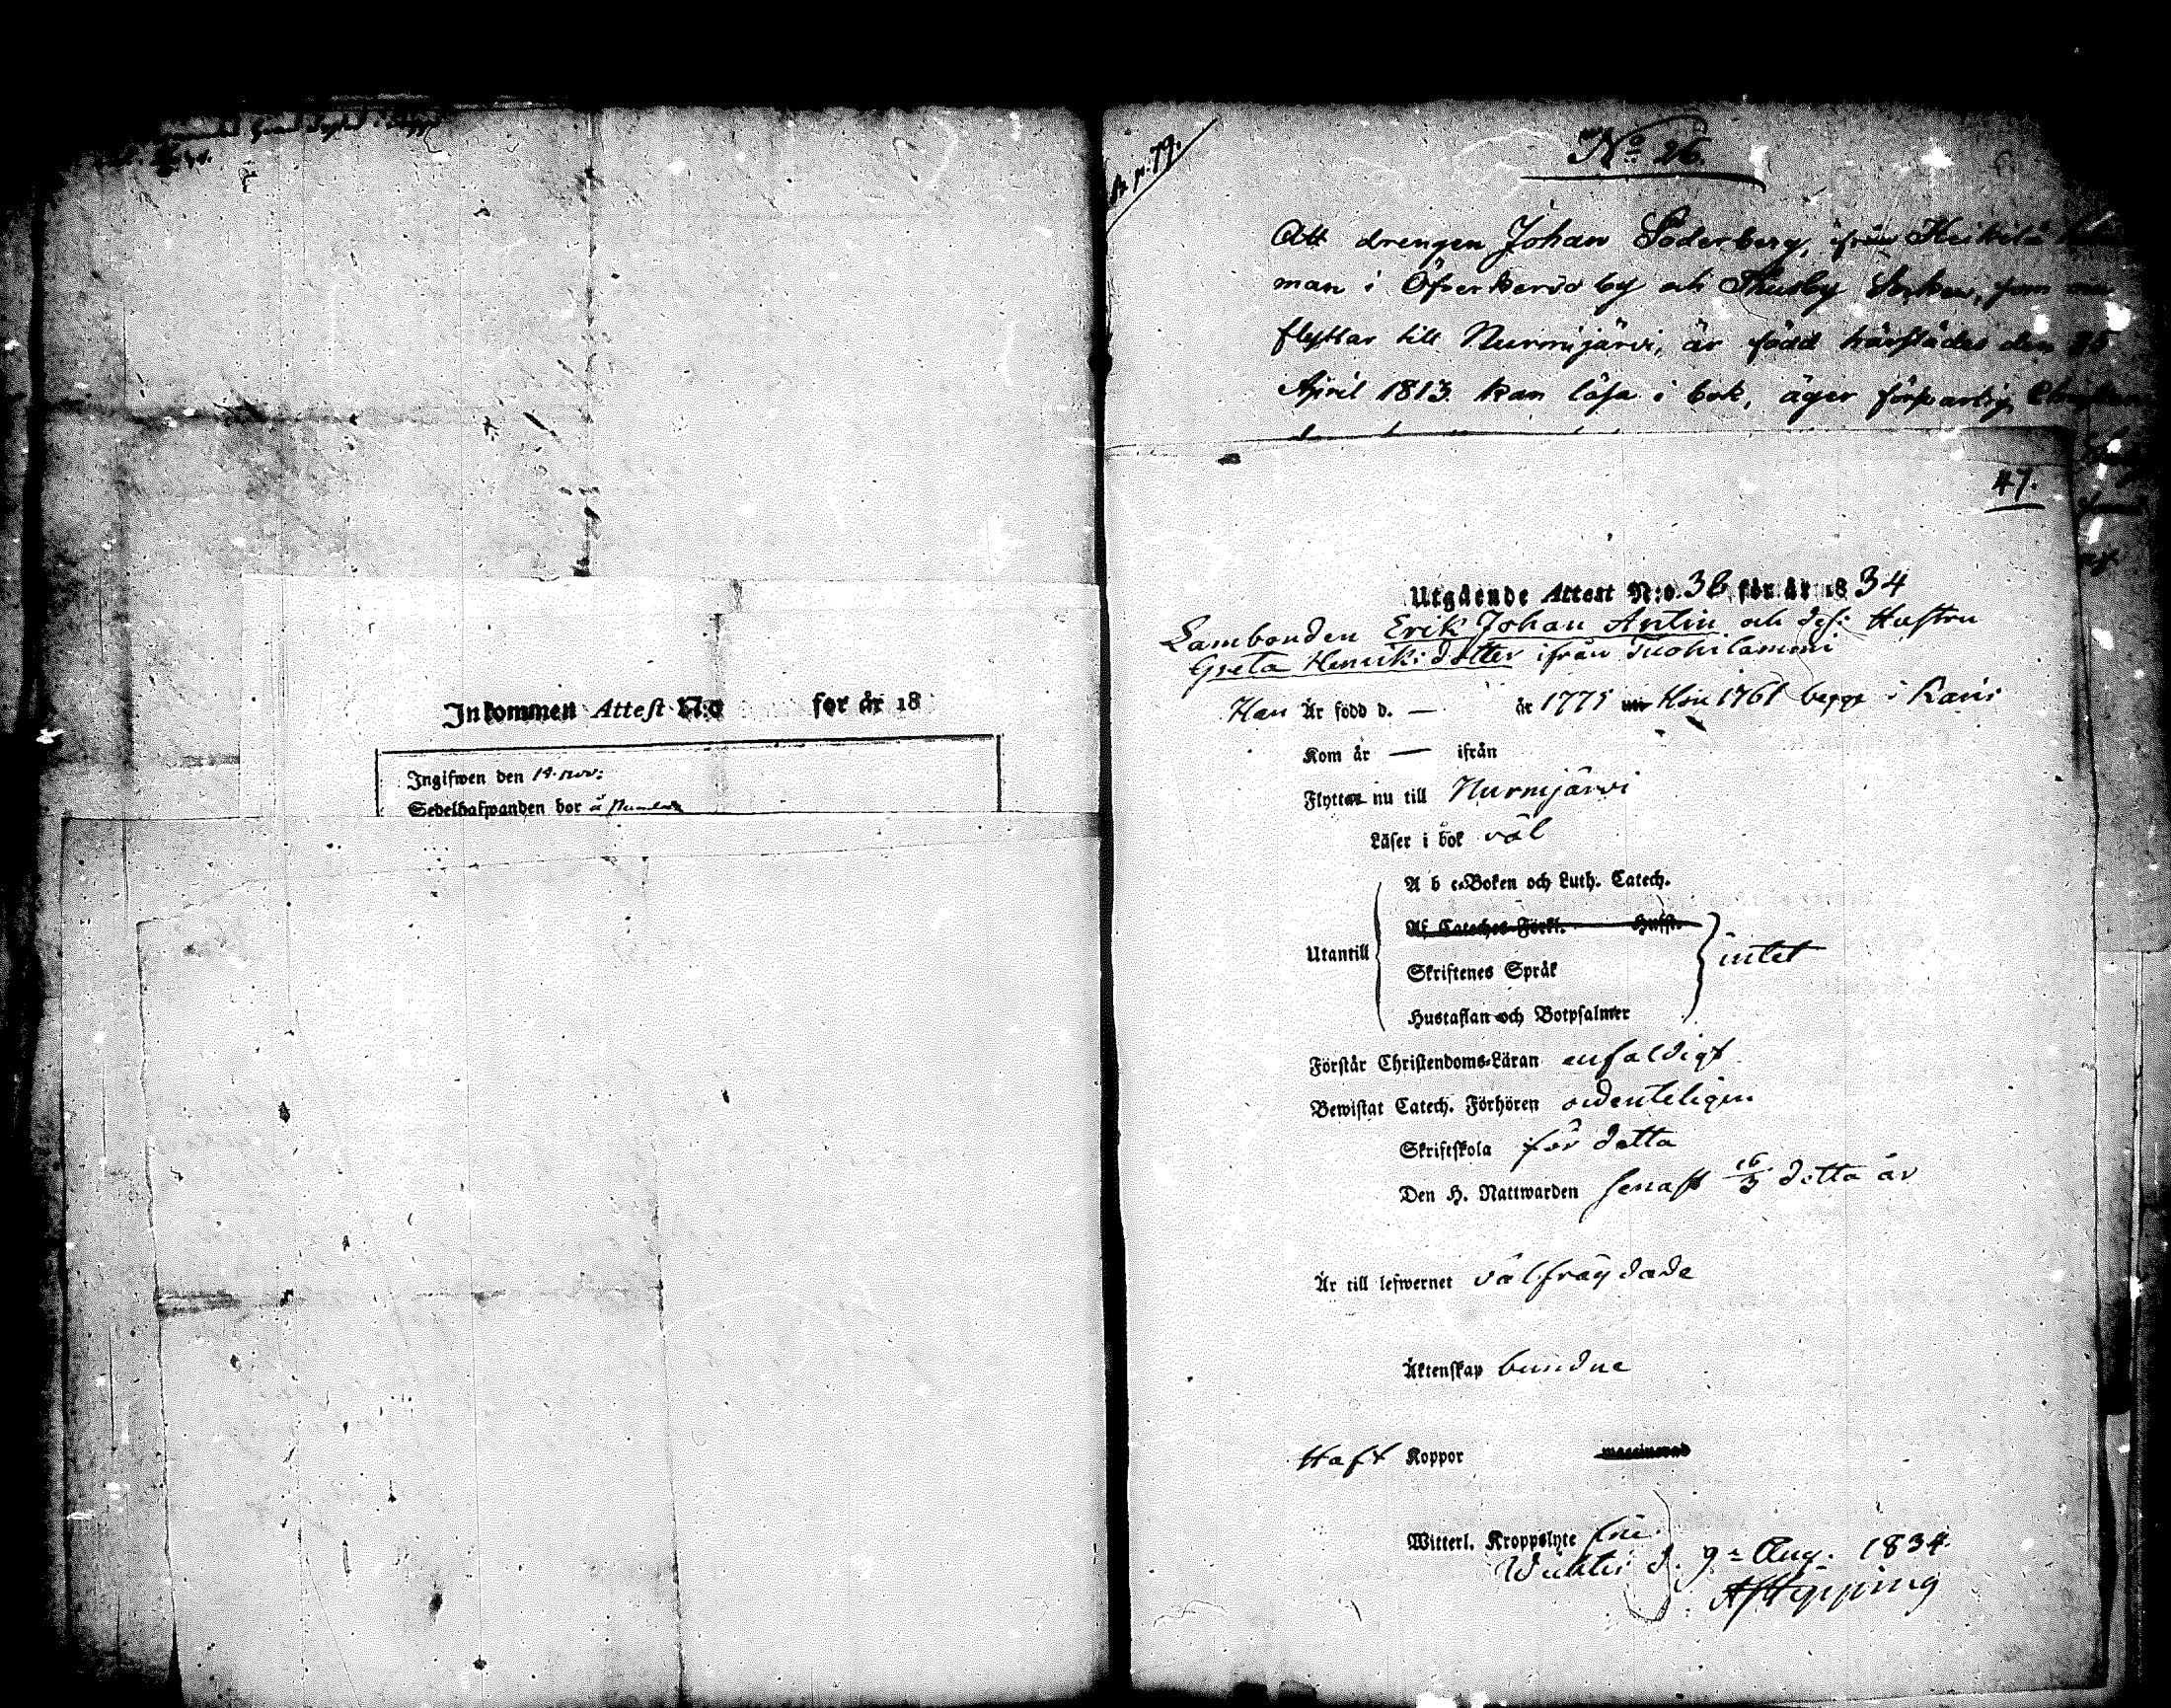 Inkommen Attest N:o for år 18
Ingifwen den 14. nov:
Sedelhafwanden bor å
N:o 26.
Att drengen Johan Söderberg, ifrån Heikkilä
man i Öfverkervo by och Thusby Sokn, som
flyttar till Nurmijärvi, är född härstädes den 26
April 1813. kan läsa i bok, äger förswarlig
47.
Utgående Attest N:o 36 för år 1834
Lambonden Erik Johan Antin och dess Hustru
Greta Henriksdotter ifrån Tuohilammi
Han Är född d. — år 1775 Hon 1761 begge i Karis
Kom år — ifrån
Flytta nu till Nurmjärvi
Läser i bok väl
A b c-Boken och Luth. Catech.
Af Cateches-Förkl. Hufst.
Utantill
Skriftenes Språk
intet
Hustaflan och Botpsalmer
Förstår Christendoms-Läran enfaldigt
Bewistat Catech. Förhören ordenteligen
Skriftskola för detta
Den H. Nattwarden senast 16/3 detta år
Är till lefwernet välfrägdade
Äktenskap bundne
Haft Koppor vaccinerad
Witterl. Kroppslyte frie.
Wichtis d. 9 Aug. 1834.